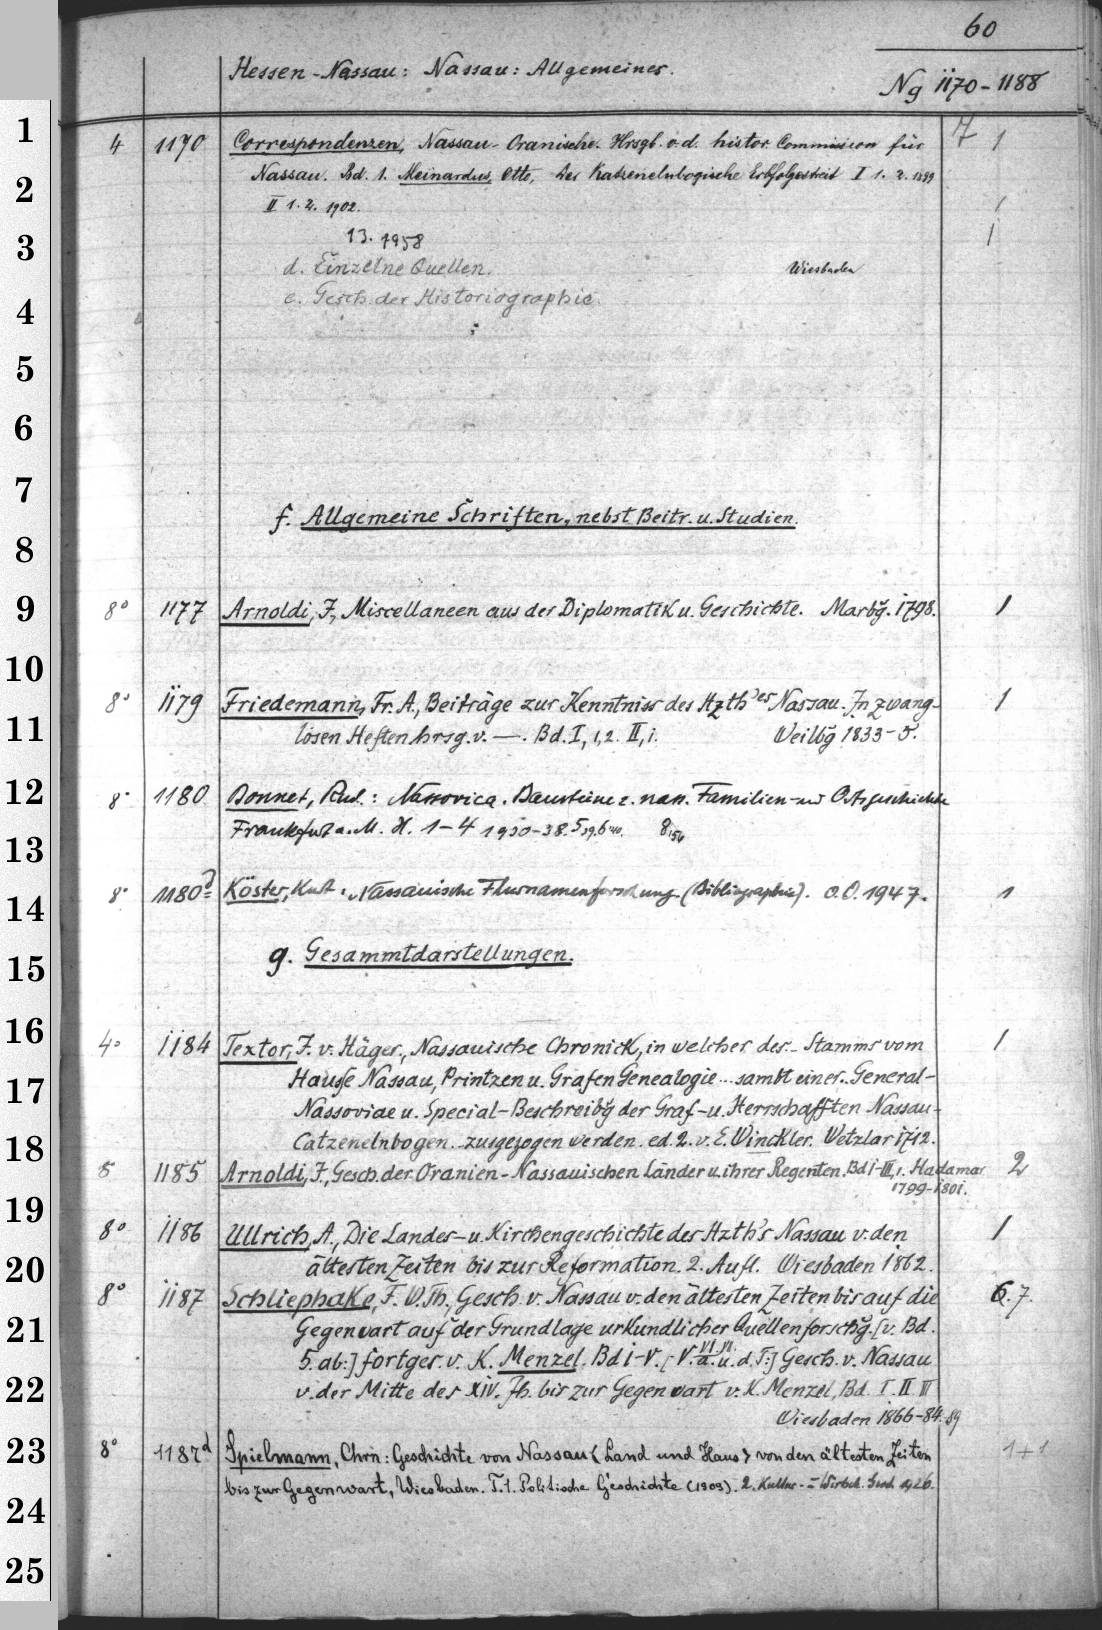 60
Hessen-Nassau: Nassau: Allgemeines.
Ng 1170-1188
1
4 1170 Correspondenzen, Nassau-Oranische. Hrsgb. v. d. histor. Commission für 7 1
2
Nassau. Bd. 1. Meinardus, Otto, Der Katzenelnbogische Erbfolgestreit I 1. 2. 1899
II 1. 2. 1902. 1
3
13. 1958 1
d. Einzelne Quellen. Wiesbaden
e. Gesch. der Historiographie.
4
5
6
7
f. Allgemeine Schriften, nebst Beitr. u. Studien.
8
9
8° 1177 Arnoldi, J., Miscellaneen aus der Diplomatik u. Geschichte. Marbg. 1798. 1
10
8° 1179 Friedemann, Fr. A., Beiträge zur Kenntniss des Hzth's Nassau. In zwang- 1
11
losen Heften hrsg. v. —. Bd. I, 1,2. II, 1. Weilbg 1833-5.
12
8° 1180 Bonnet, Rud.: Nassovica. Bausteine z. nass. Familien- und Ortsgeschichte
Frankfurt a. M. H. 1-4 1930-38. 5,39. 6,40. 8,54
13
8° 1180d Köster, Kurt: Nassauische Flurnamenforschung (Bibliographie). o. O. 1947. 1
14
g. Gesammtdarstellungen.
15
16
4° 1184 Textor, J. v. Häger, Nassauische Chronick, in welcher des.. Stamms vom 1
17
Hausse Nassau, Printzen u. Grafen Genealogie... sambt einer.. General-
Nassoviae u. Special-Beschreibg der Graf- u. Herrschafften Nassau-
18
Catzenelnbogen.. zusgezogen werden. ed. 2. v. E. Winckler. Wetzlar 1712.
8 1185 Arnoldi, J., Gesch. der Oranien-Nassauischen Länder u. ihrer Regenten. Bd I-III, 1. Hadamar 2
1799-1801.
19
8° 1186 Ullrich, A., Die Landes- u. Kirchengeschichte des Hzth's Nassau v. den 1
20
ältesten Zeiten bis zur Reformation. 2. Aufl. Wiesbaden 1862.
8° 1187 Schliephake, F. W. Th., Gesch. v. Nassau v. den ältesten Zeiten bis auf die 6. 7.
21
Gegenwart auf der Grundlage urkundlicher Quellenforschg. [v. Bd.
5. ab:] fortges. v. K. Menzel. Bd I-V. [V. VI VII. a. u. d. T:] Gesch. v. Nassau
22
v. der Mitte des XIV. Jh. bis zur Gegenwart v. K. Menzel, Bd. I. II III
Wiesbaden 1866-84. 89
23
8° 1187d Spielmann, Chrn: Geschichte von Nassau <Land und Haus> von den ältesten Zeiten 1+1
bis zur Gegenwart, Wiesbaden. T. 1. Politische Geschichte (1909). 2. Kultur- = Wirtsch. Gesch. 1926.
24
25